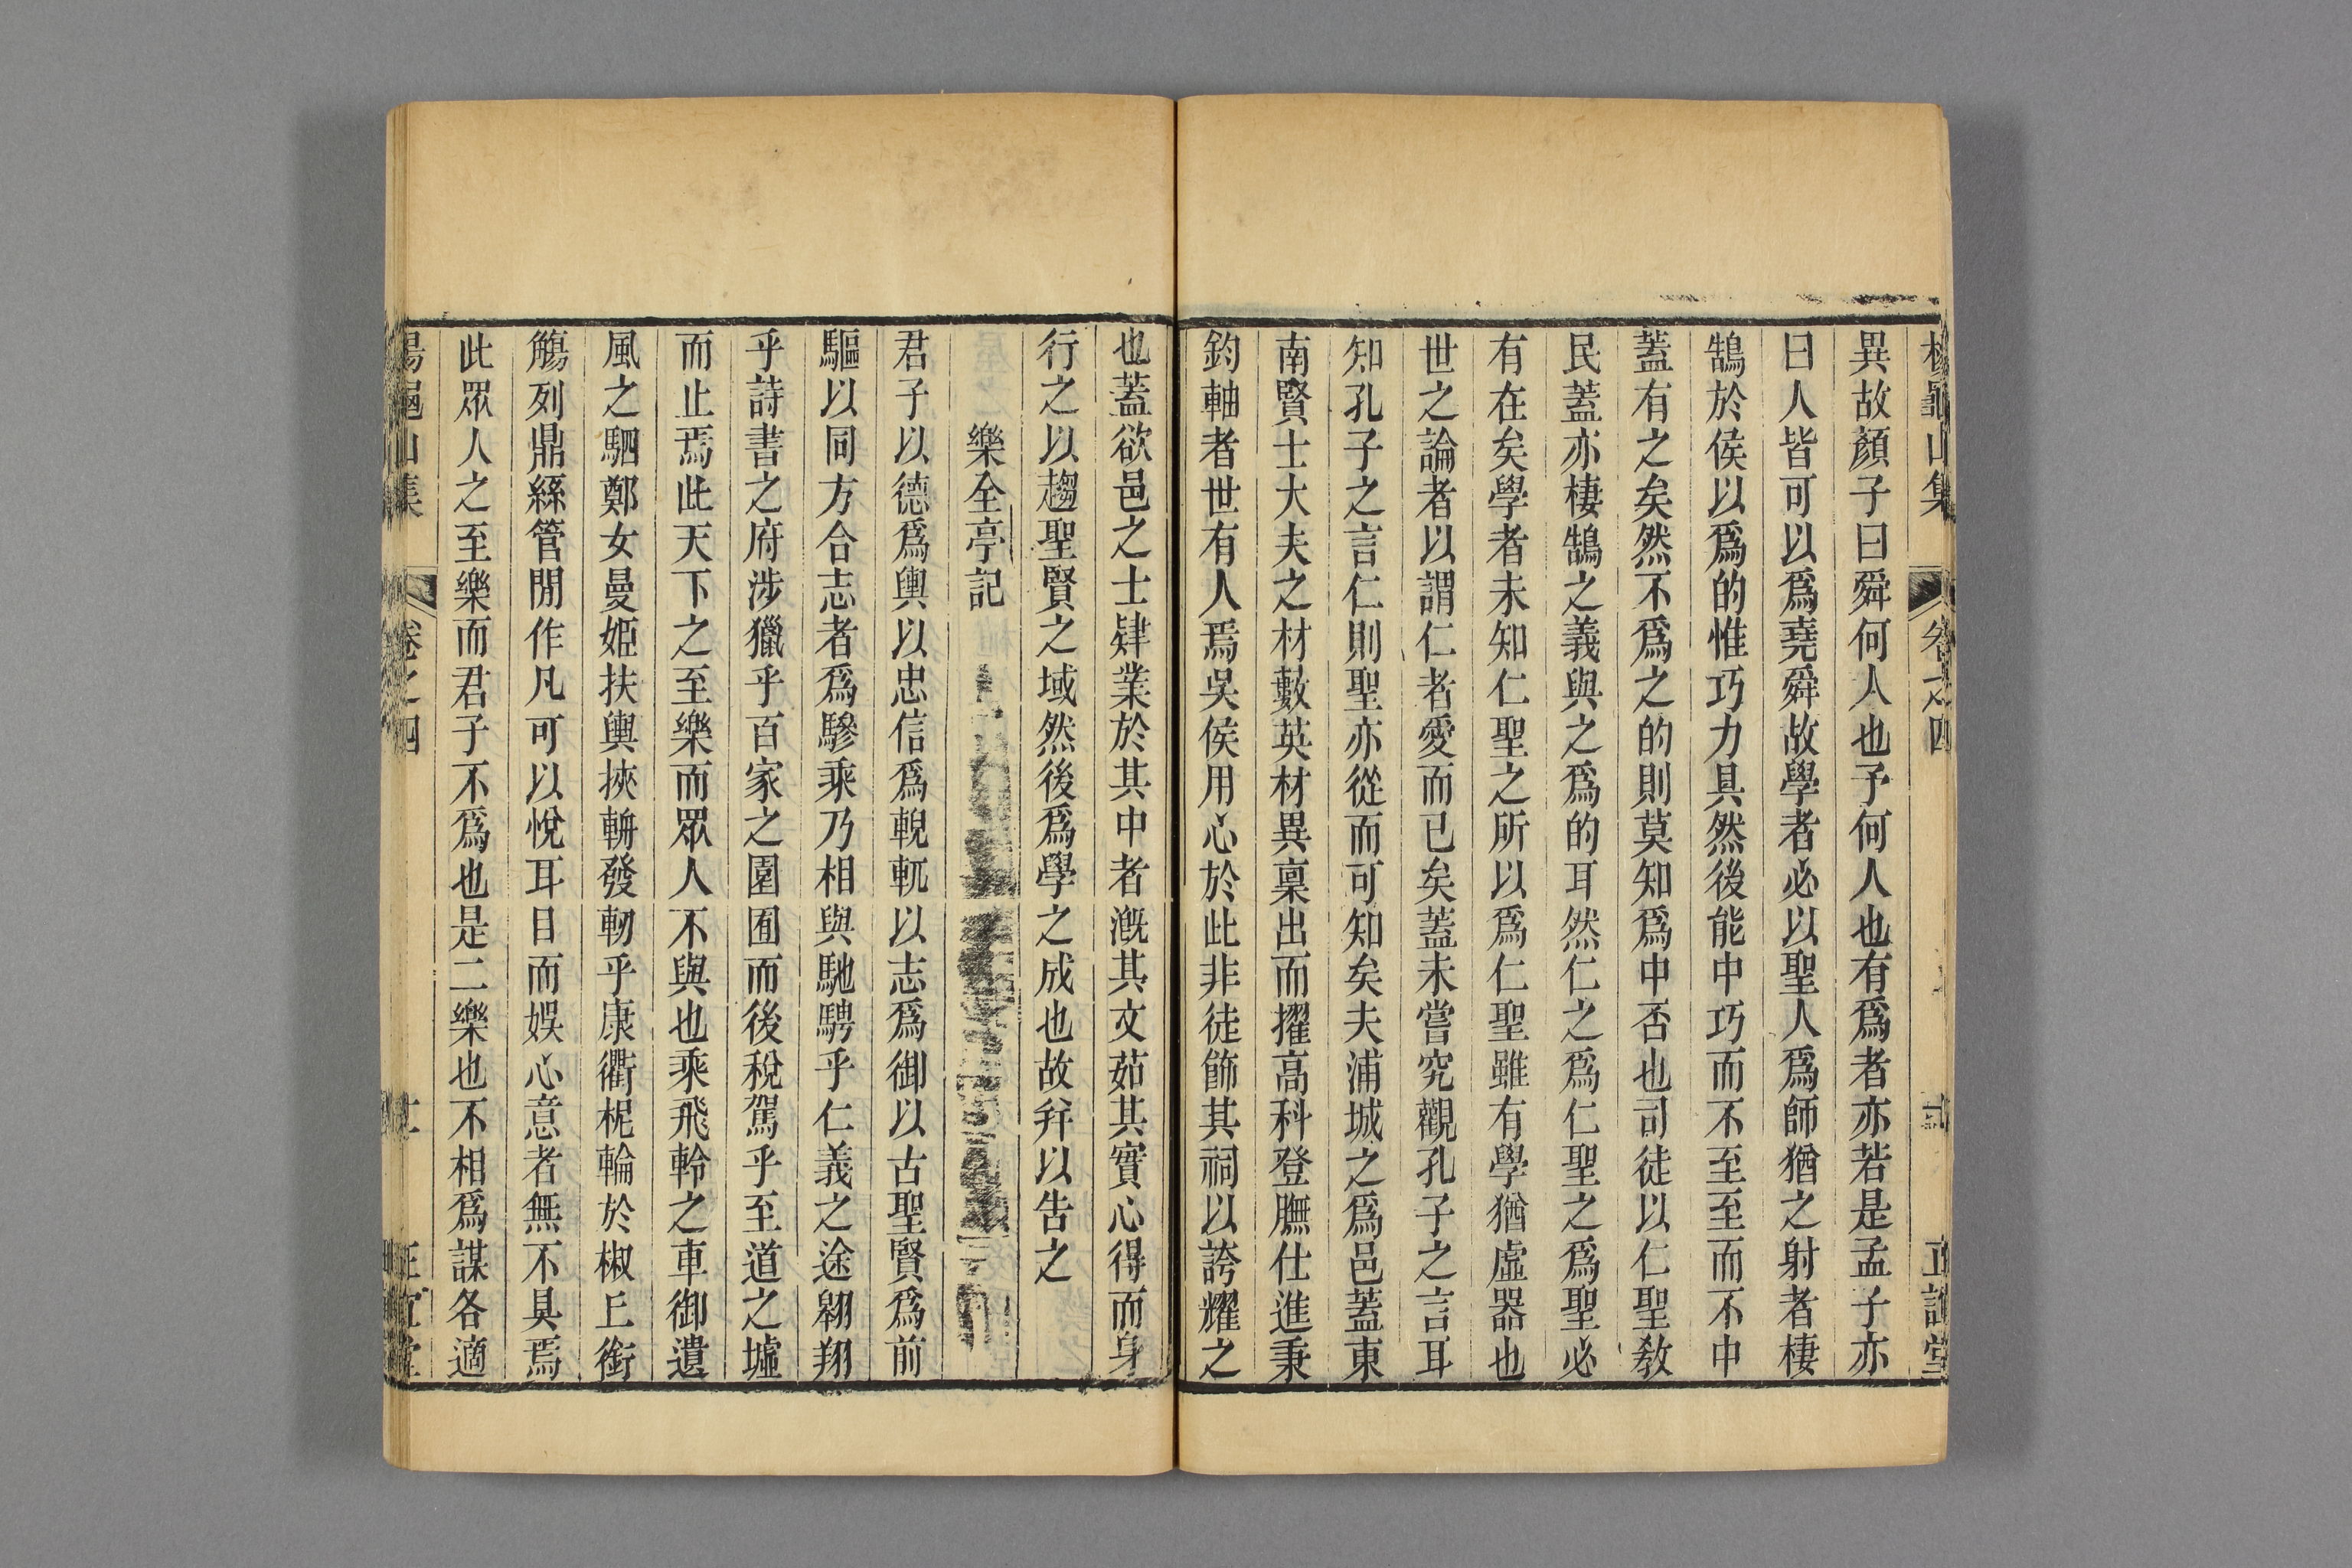 楊龜山集 卷之四 正誼堂
異故顏子曰舜何人也予何人也有爲者亦若是孟子亦
曰人皆可以爲堯舜故學者必以聖人爲師猶之射者棲
鵠於侯以爲的惟巧力具然後能中巧而不至至而不中
蓋有之矣然不爲之的則莫知爲中否也司徒以仁聖敎
民蓋亦棲鵠之義與之爲的耳然仁之爲仁聖之爲聖必
有在矣學者未知仁聖之所以爲仁聖雖有學猶虛器也
世之論者以謂仁者愛而已矣蓋未嘗究觀孔子之言耳
知孔子之言仁則聖亦從而可知矣夫浦城之爲邑蓋東
南賢士大夫之材藪英材異稟出而擢高科登膴仕進秉
鈞軸者世有人焉吳侯用心於此非徒飾其祠以誇耀之
也蓋欲邑之士肄業於其中者漑其文茹其實心得而身
行之以趨聖賢之域然後爲學之成也故幷以告之
樂全亭記
君子以德爲輿以忠信爲輗軏以志爲御以古聖賢爲前
驅以同方合志者爲驂乘乃相與馳騁乎仁義之途翱翔
乎詩書之府涉獵乎百家之園囿而後稅駕乎至道之墟
而止焉此天下之至樂而眾人不與也乘飛軨之車御遺
風之駟鄭女曼姬扶輿挾輈發軔乎康衢柅輪於椒丘銜
觴列鼎絲管閒作凡可以悅耳目而娛心意者無不具焉
此眾人之至樂而君子不爲也是二樂也不相爲謀各適
楊龜山集 卷之四 正誼堂